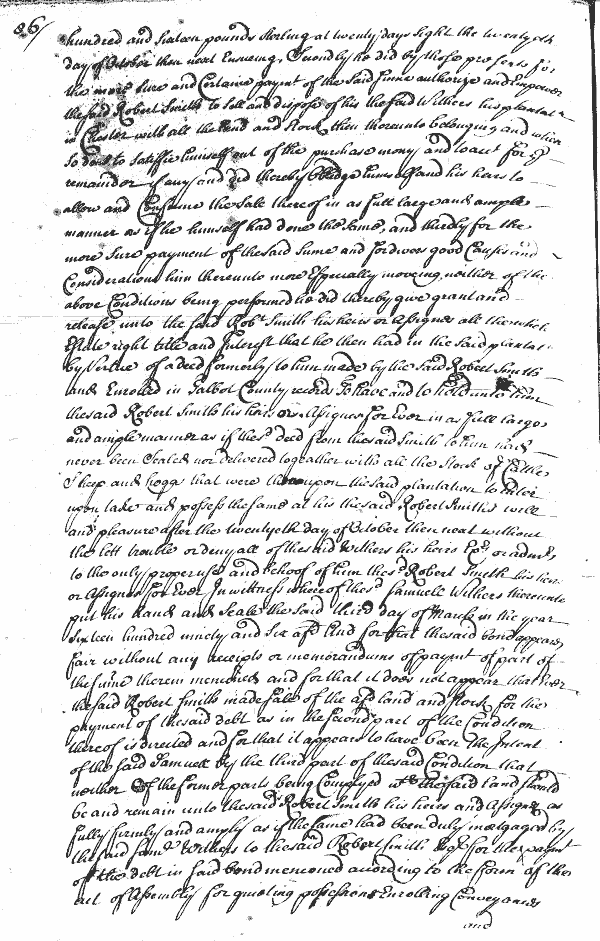 86/
hundred and sixteen pounds sterling at twenty days sight the twentyeth
day of October then next Ensueing, Secondly he did by those presents for
the more sure and Certaine paymt of the said sume authorize and Empower
the said Robert Smith to sell and dispose of his the said Withers his plantat
in Chester with all the and Stock then thereunto belonging and when
so don to satisfie himself out of the purchase mony and to acct for ye
remaindr if any and did thereby Obledge himself and his heirs to
allow and Confirme the Sale thereof in as full large and ample
manner as if he himself had done the same, and thirdly for the
more sure payment of the said Sume and for divers good Causes and
Considerations him thereunto more Especially moving, neither of the
above Conditions being performed he did thereby give grant and
release unto the said Robt Smith his heirs or Assignes all the whole
Estate right title and Interest that he then had in the said plantat
by Vertue of a deed formerly to him made by the said Robert Smith
and Enrolled in Talbot County records To have and to hold unto him
the said Robert Smith his heirs or Assignes for Ever in as full large
and ample manner as if the sd deed from the said Smith to him had
never been Sealed nor delivered together with all the Stock of Cattle
Sheep and hoggs that were thereupon the said plantation to Enter
upon take and possess the same at his the said Robert Smiths will
and pleasure after the twentyeth day of October then next without
the lett trouble or denyall of the said Withers his heirs Exrs or admrs
to the only proper use and behoof of him the sd Robert Smith his heirs
or Assignes for Ever In witness whereof the sd Samuell Withers thereunto
put his hand and Seale the said third day of March in the year
Sixteen hundred ninety and Six afd And for that the said bond appears
fair without any receipts or memorandums of paymt of part of
the sume therein menconed and for that it does not appear that Ever
the said Robert Smith made Sale of the afd land and Stock for the
payment of the said debt as in the Second part of the Condition
thereof is directed and for that it appears to have been the Intent
of the said Samuell by the third part of the said Condition that
neither of the former parts being Complyed wth the said land should
be and remain unto the said Robert Smith his heirs and Assignes as
fully firmly and amply as if the same had been duly mortgaged by
the said Saml Withers to the said Robert Smith for the paymt
of the debt in said bond menconed according to the form of the
act of Assembly for quieting possessions Enrolling Conveyances
and